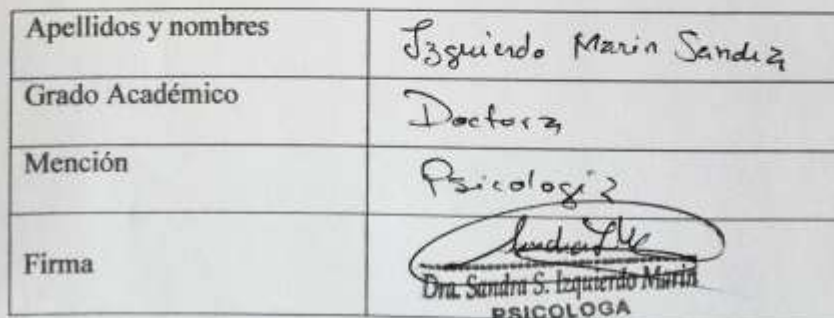 Apellidos y nombres Izquierdo Marin Sandra
Grado Académico Doctora
Mención Psicología
Firma
Dra. Sandra S. Izquierdo Marin
PSICOLOGA